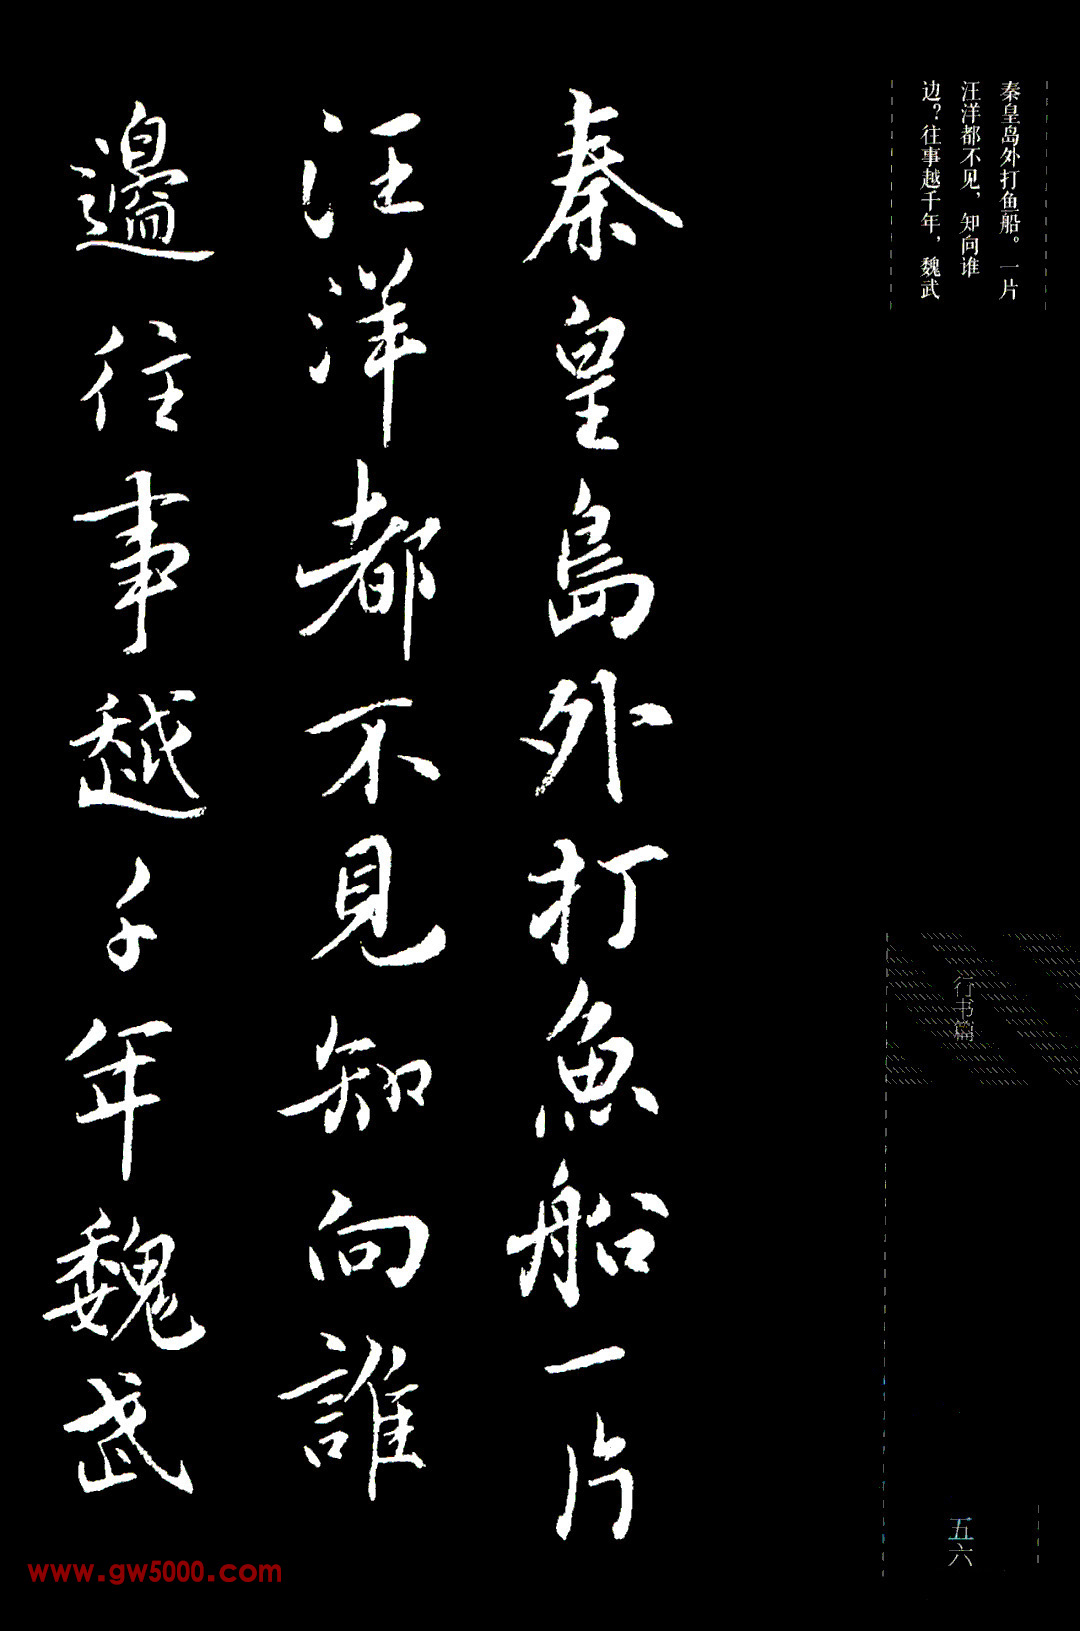 秦皇岛外打鱼船。一片
汪洋都不见，知向谁
边？往事越千年，魏武
秦皇島外打魚船一片
汪洋都不見知向誰
邊往事越千年魏武
行书篇
五六
www.gw5000.com